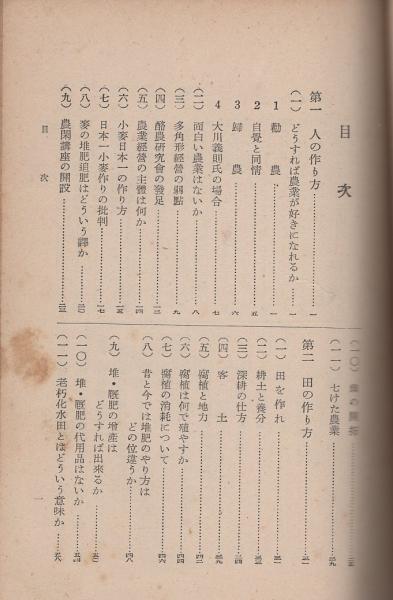 目次
第一 人の作り方……一
(一) どうすれば農業が好きになれるか……一
1 勸農……一
2 自覺と同情……五
3 歸農……六
4 大川義則氏の場合……七
(二) 面白い農業はないか……八
(三) 多角形經營の弱點……九
(四) 酪農研究會の發足……一三
(五) 農業經營の主體は何か……一四
(六) 小麥日本一の作り方……一五
(七) 日本一小麥作りの批判……一七
(八) 麥の堆肥追肥はどういう譯か……二〇
(九) 農閑講座の開設……
(一〇)
(一一) 七けた農業……二九
第二 田の作り方……三一
(一) 田を作れ……三一
(二) 耕土と養分……
(三) 深耕の仕方……三四
(四) 客土……三九
(五) 腐植と地力……四二
(六) 腐植は何で殖やすか……四四
(七) 腐植の消耗について……四六
(八) 昔と今では堆肥のやり方は
どの位違うか……四八
(九) 堆・厩肥の增産は
どうすれば出來るか……五〇
(一〇) 堆・厩肥の代用品はないか……五四
(一一) 老朽化水田とはどういう意味か……五八
目次
一